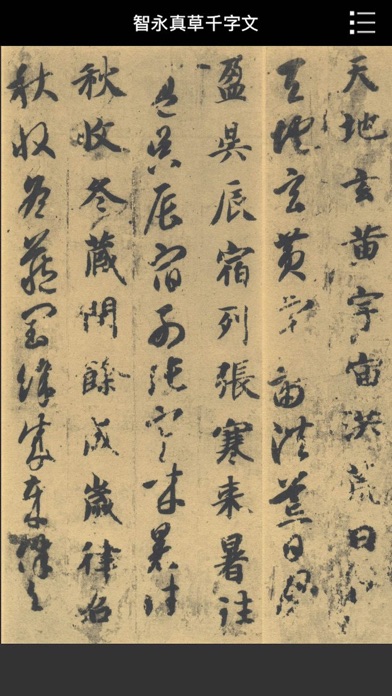 智永真草千字文
天地玄黄宇宙洪荒日
天地玄黄宇宙洪荒日
盈昃辰宿列張寒来暑往
盈昃辰宿列張寒来暑往
秋收冬藏閏餘成歲律召
秋收冬藏閏餘成歲律召